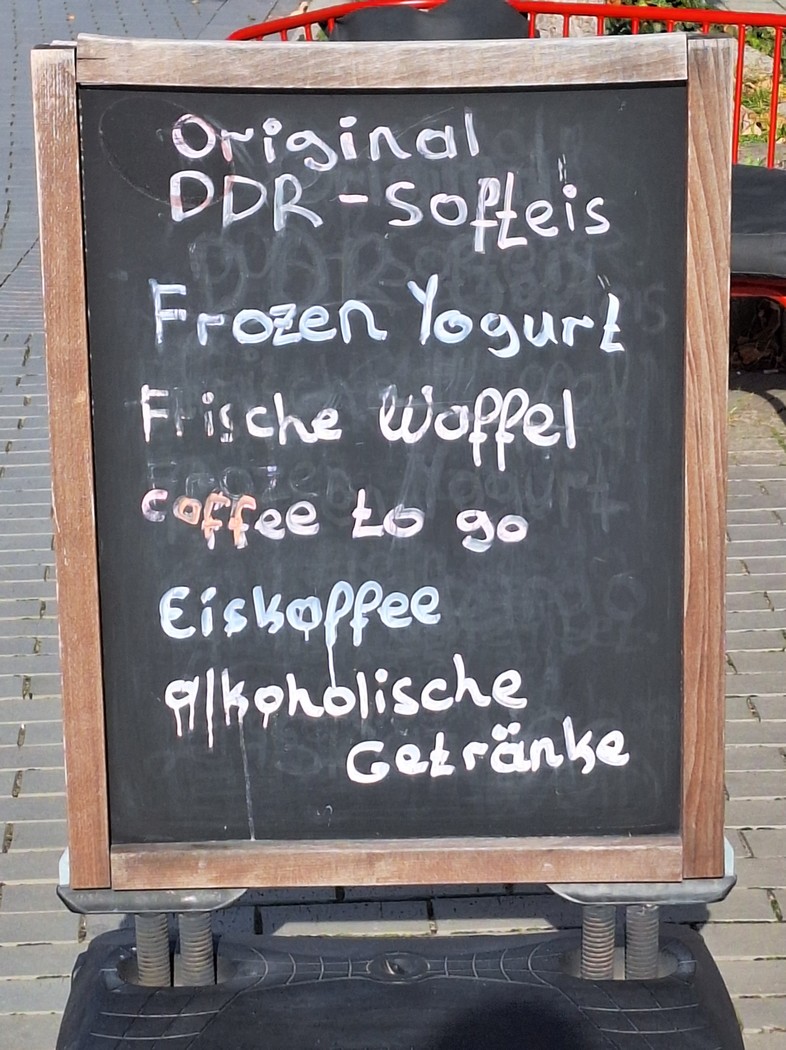 Original
DDR-Softeis
Frozen Yogurt
Frische Waffel
coffee to go
Eiskaffee
alkoholische
Getränke